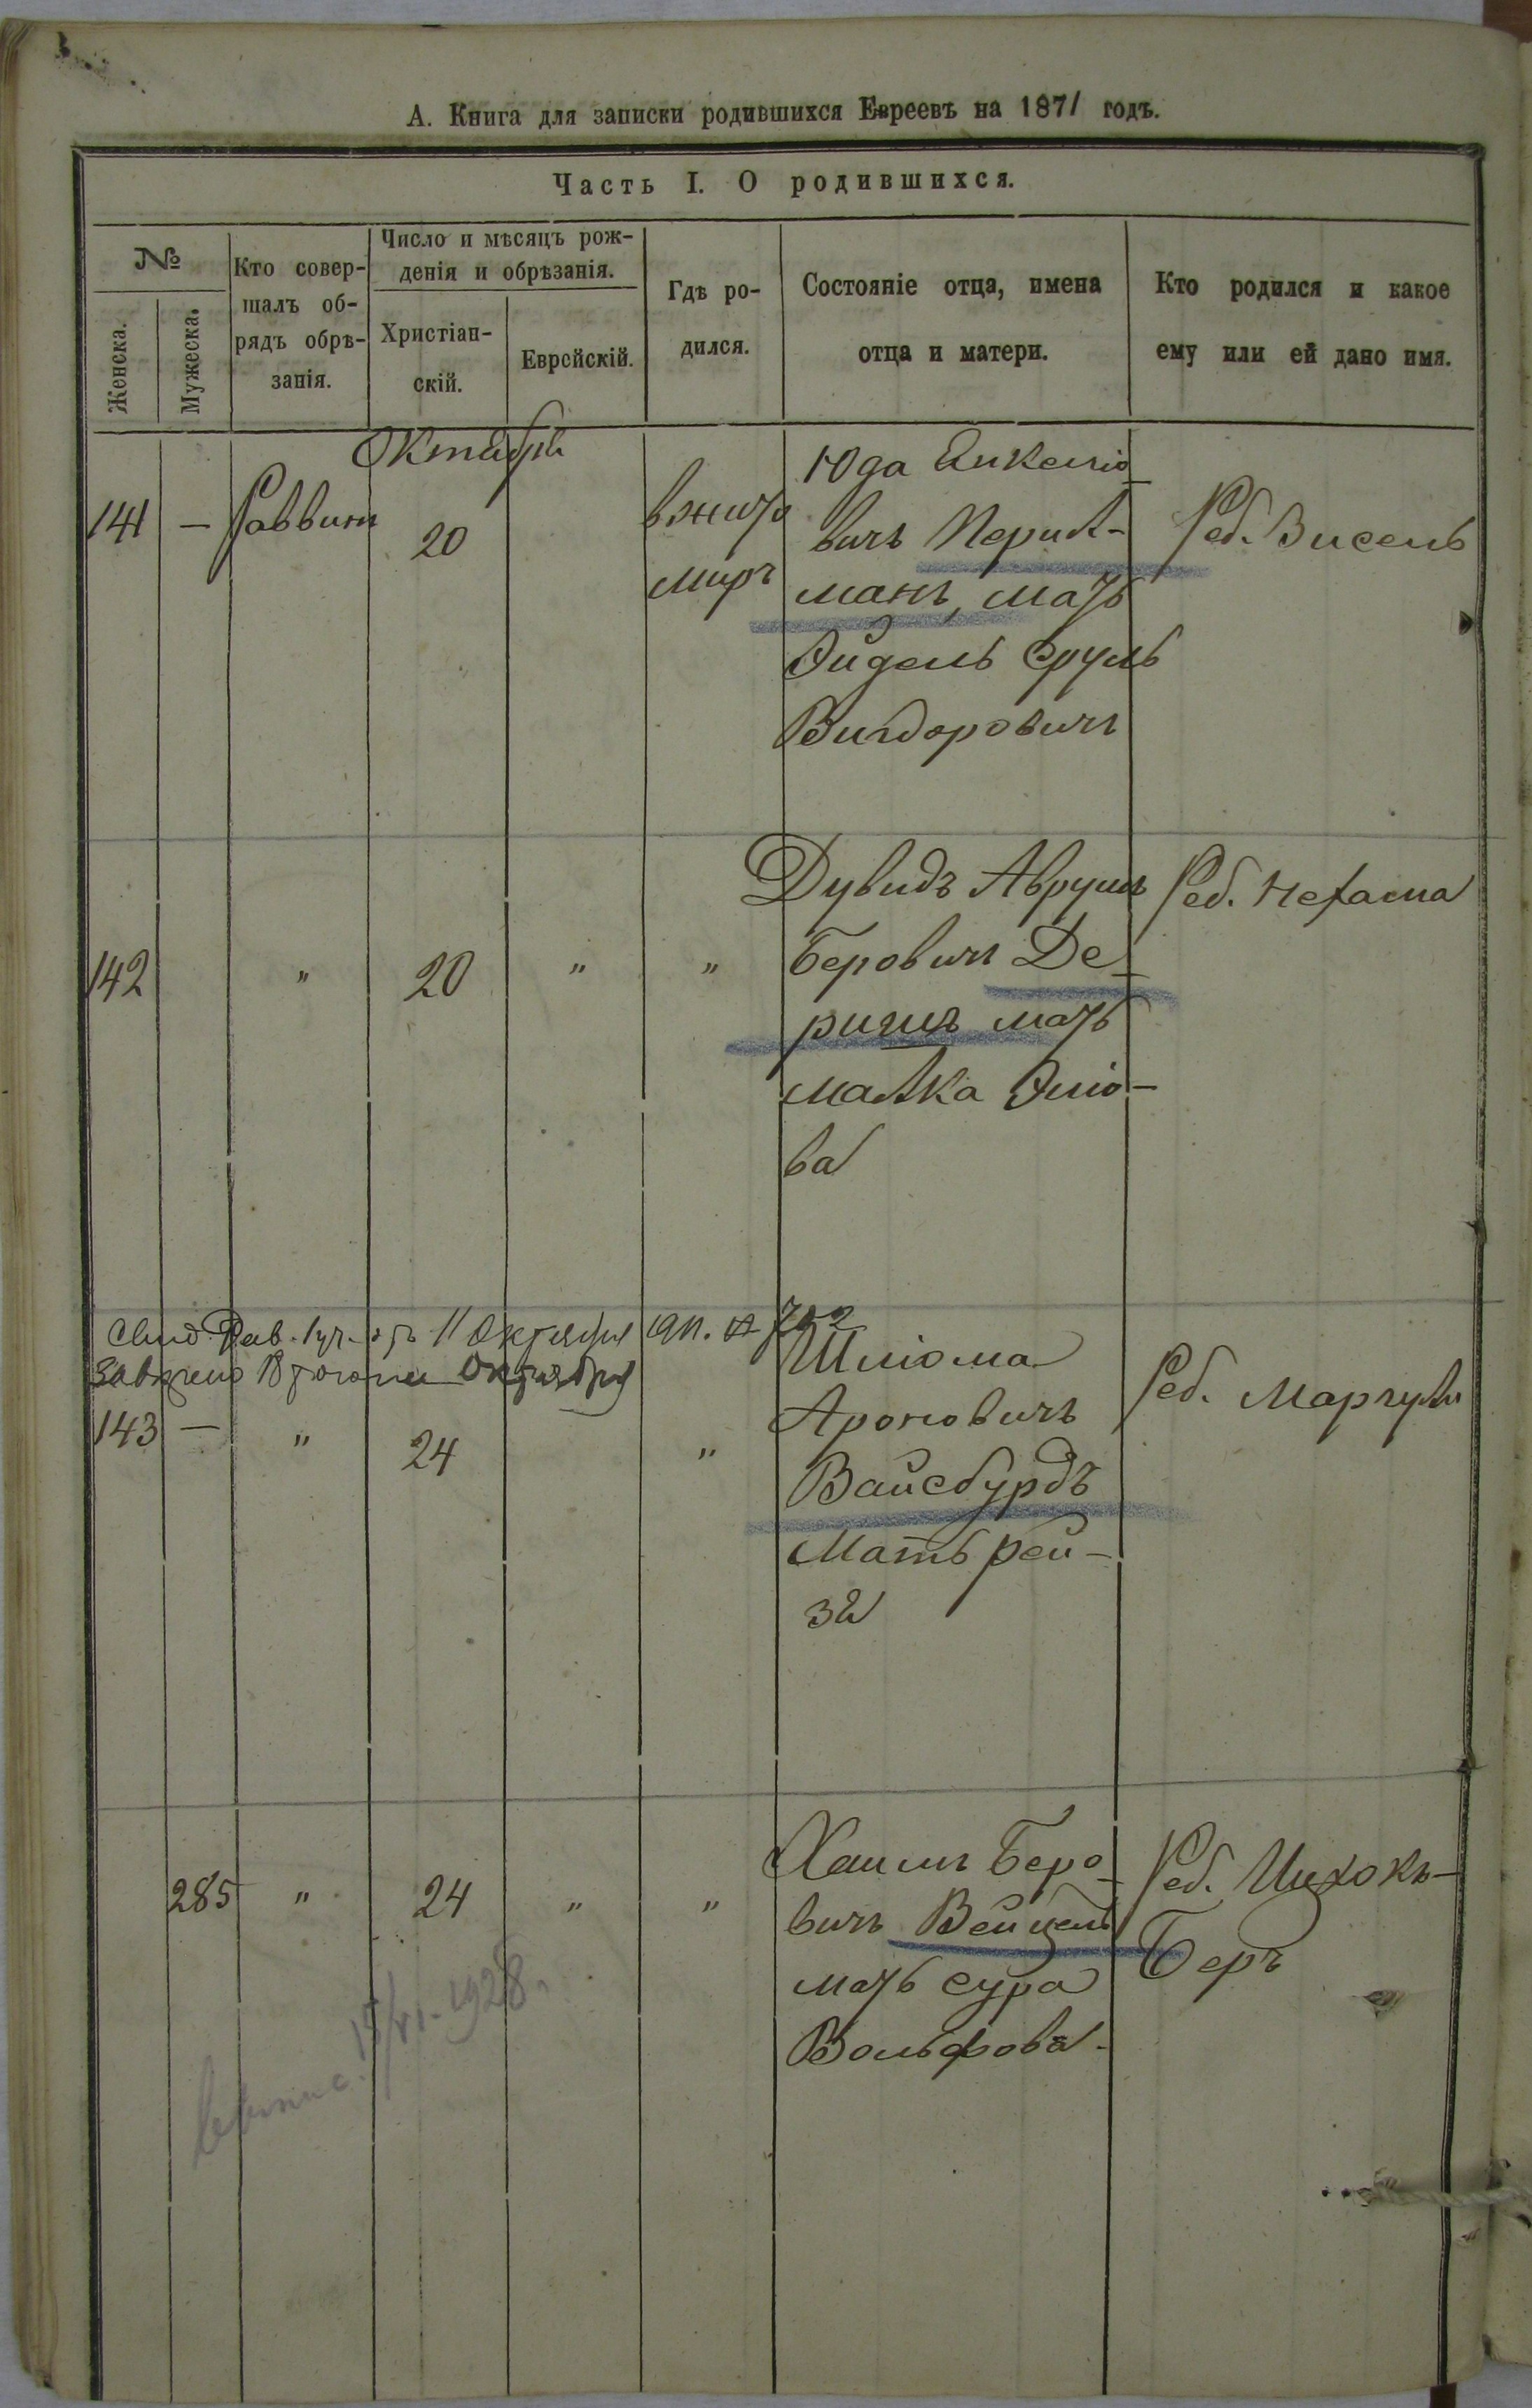 А. Книга для записки родившихся Евреевъ на 1871 годъ.
Часть I. О родившихся.
№
Женска.
Мужеска.
Кто совер-
шалъ об-
рядъ обрѣ-
занія.
Число и мѣсяцъ рож-
денія и обрѣзанія.
Христіан-
скій.
Еврейскій.
Гдѣ ро-
дился.
Состояніе отца, имена
отца и матери.
Кто родился и какое
ему или ей дано имя.
Октября
141 — Раввинъ 20
в жито
миръ
Юда Янкелю-
вичъ Перил-
манъ, мать
Эйдель Сруль
Вигдоровичъ
Реб. Висель
142 " 20 " "
Дувидъ Аврумъ
Беровичъ Де-
ригъ мать
малка Эліо-
ва
Реб. Нехама
11 Октября 1911. № 702
Октября
143 — " 24 "
Шліома
Ароновичъ
Вайсбурдъ
Мать рей-
за
Реб. Маргули
285 " 24 " "
Хаимъ Беро-
вичъ Вейцель
мать сура
Вольфова.
Реб. Ицхокъ-
Беръ
15/VI-1928.